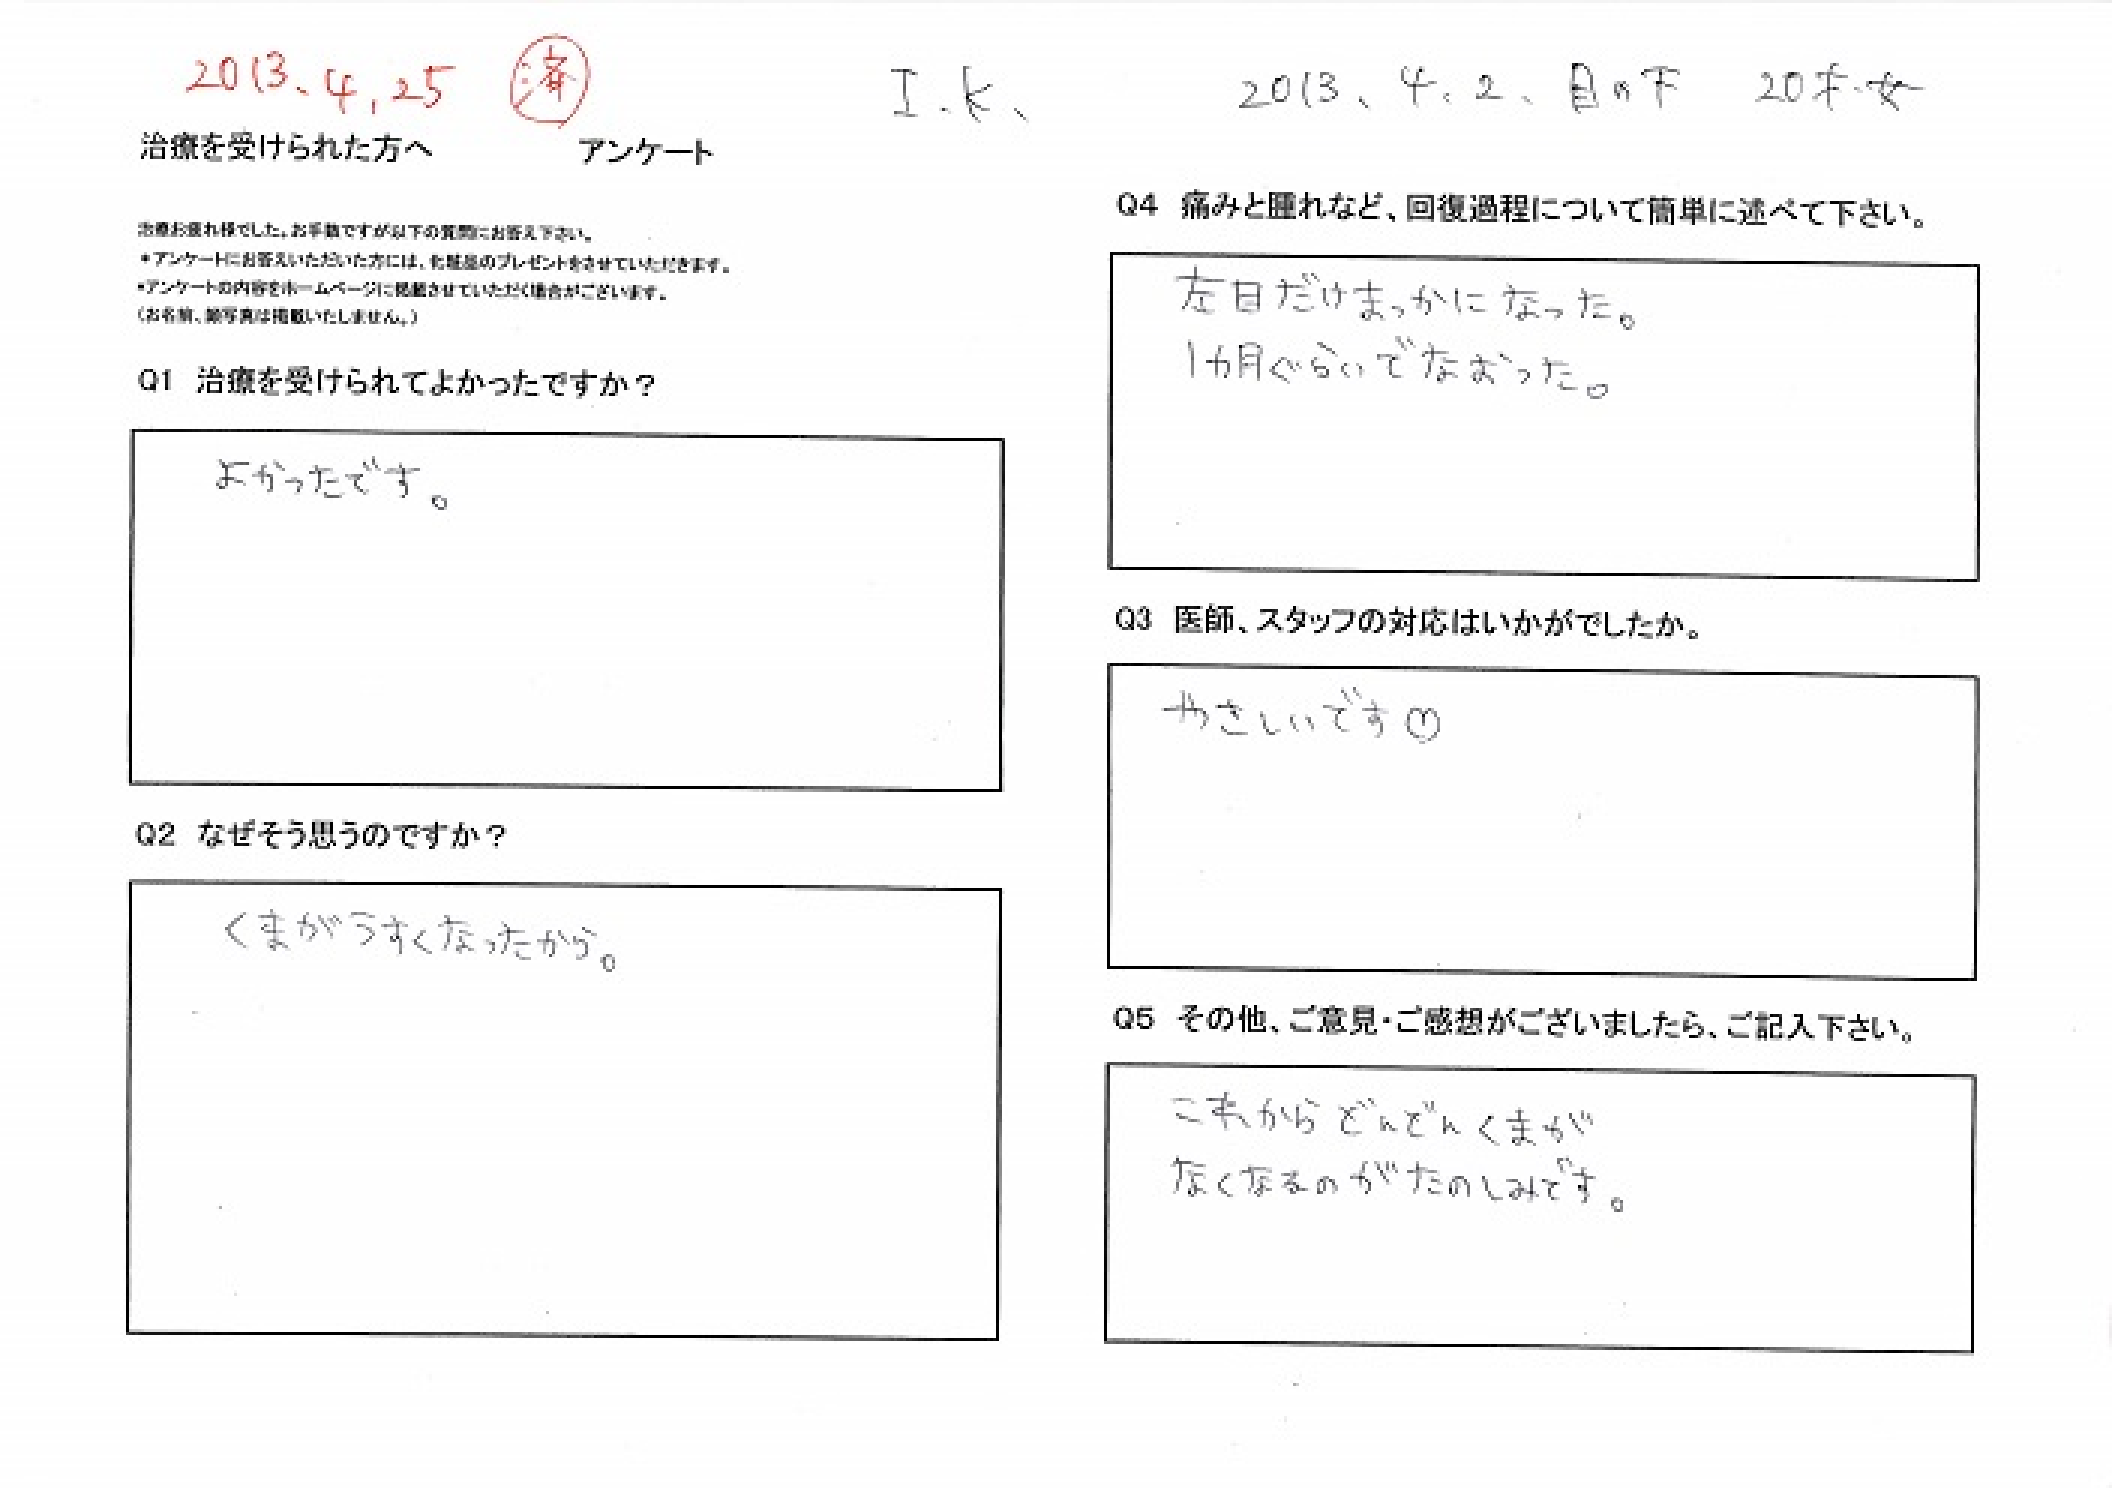 2013、4、25 済
I.K、
2013、4、2、目の下 20才・女
治療を受けられた方へ アンケート
治療お疲れ様でした。お手数ですが以下の質問にお答え下さい。
*アンケートにお答えいただいた方には、化粧品のプレゼントをさせていただきます。
*アンケートの内容をホームページに掲載させていただく場合がございます。
(お名前、顔写真は掲載いたしません。)
Q1 治療を受けられてよかったですか?
よかったです。
Q2 なぜそう思うのですか?
くまがうすくなったから。
Q4 痛みと腫れなど、回復過程について簡単に述べて下さい。
左目だけまっかになった。
1カ月ぐらいでなおった。
Q3 医師、スタッフの対応はいかがでしたか。
やさしいです♡
Q5 その他、ご意見・ご感想がございましたら、ご記入下さい。
これからどんどんくまが
なくなるのがたのしみです。